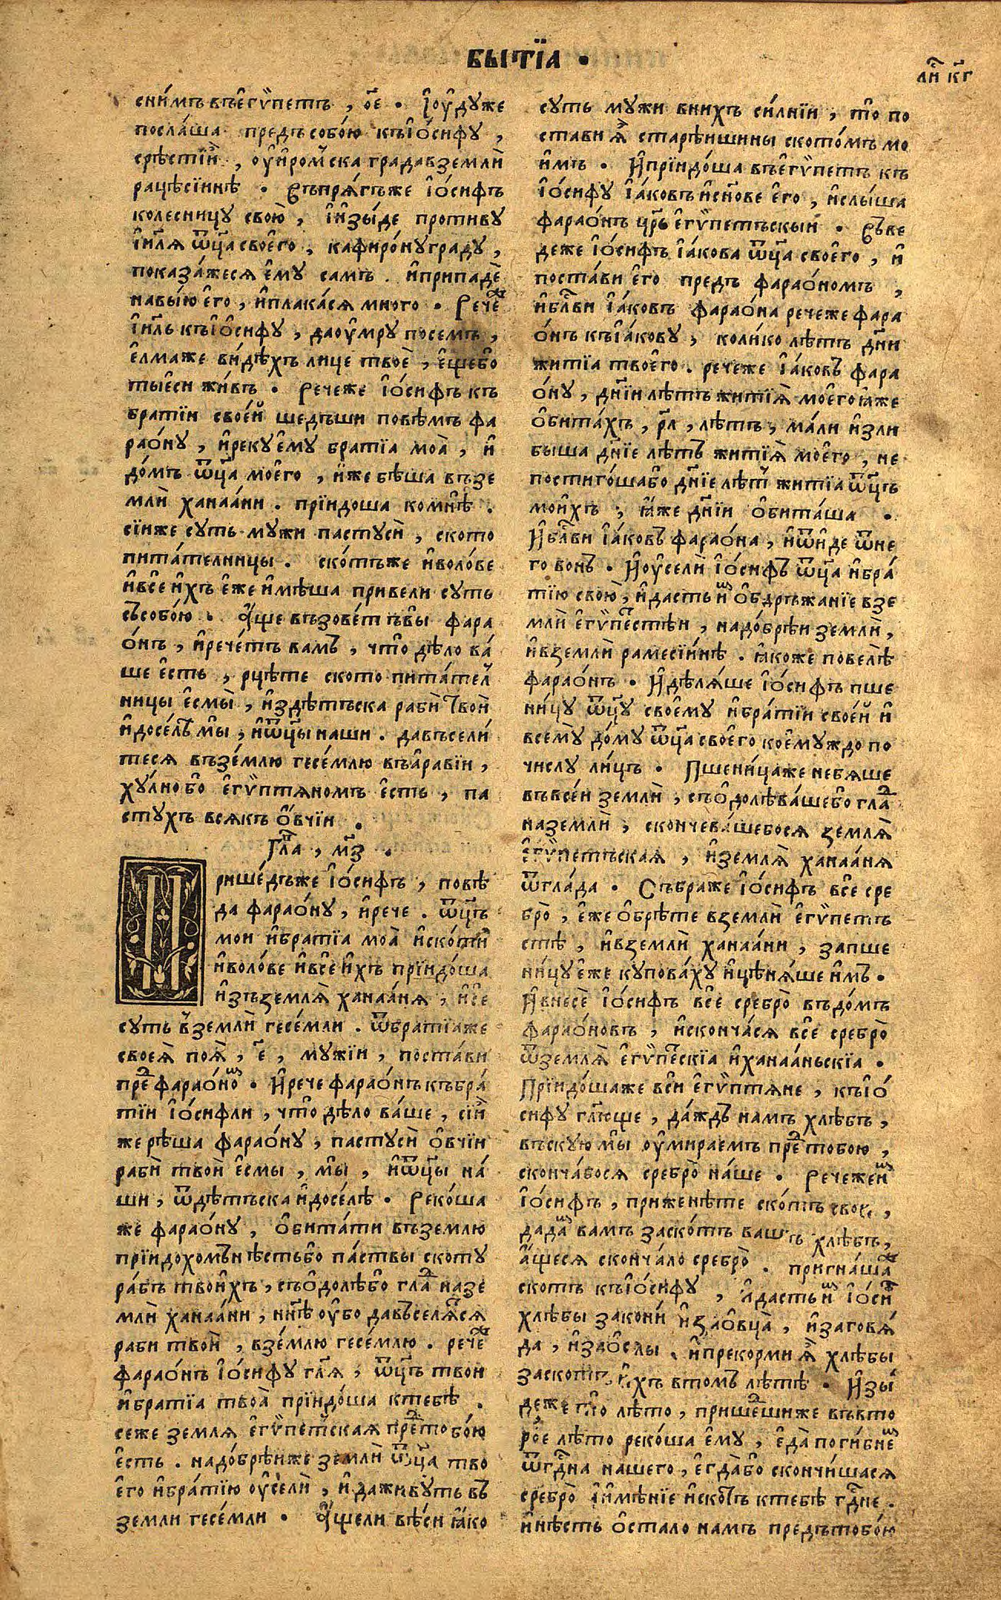 БЫТЇА ·
ли҃ к҃г
сни́мъ въєгѵ́петъ , ѻ҃є · Їѹ́дꙋже
посла́ша предъ собо́ю къїѡ́сифꙋ ,
срѣ́стїи , ѹ҆и҆ро́мска града вземлѝ
рацѣсїинѣ · Съпрѧ́гъже їѡ́сифъ
колесницꙋ свою̀ , и҆изы́де противꙋ
ї҆и҃лѧ ѿц҃а своє҆го , кафиро́нꙋ градꙋ ,
показа́жесѧ є҆мꙋ самъ . и҆припадѐ
навы́ю є҆го , и҆плака́сѧ много · Речѐже
ї҆и҃ль къїѡ́сифꙋ , даѹ҆мрꙋ посемъ ,
є҆лмаже ви́дѣхъ лице твоѐ , є҆щебо
тыє҆си жи́въ · Речеже їѡ́сифъ къ
братїи своєй шедъши повѣ́мъ фа
раѡ́нꙋ , и҆рекꙋ є҆мꙋ братїа моа̀ , и҆
до́мъ ѿц҃а моє҆го , и҆же бѣша въ зе
мли ханаа́ни . прїидоша комнѣ̀ .
сїиже сꙋть мꙋжи пастꙋсѝ , ското
пита́телницы . ско́тъже и҆воло́ве
и҆всѐ и҆хъ є҆же и҆мѣ́ша привели сꙋть
съсобо́ю . а҆ще възове́тъ вы̀ фара
ѡ́нъ , и҆рече́тъ вамъ , что̀ дѣло ва́
ше є҆сть , рцѣте ското питател
ницы є҆смы̀ , издѣ́тъска рабѝ твоѝ
и҆досе́лѣ мы̀ , и҆ѿц҃ы наши . давъсели́
тесѧ въ зе́млю гесе́млю въара́вїи ,
хꙋ́лно бо є҆гѵ́птѧномъ є҆сть , па
стꙋхъ всѧ́къ ѻ҆вчїи .
Гл҃а , м҃з .
Прише́дъже їѡ́сифъ , повѣ́
да фараѡ́нꙋ , и҆рече . ѿц҃ъ
мои и҆братїа моа̀ и҆ско́ти
и҆воло́ве и҆всѐ и҆хъ прїидо́ша
и҆зъ землѧ̀ ханаа́нѧ , и҆се
сꙋть вземлѝ гесе́мли . ѿбратїаже
своєѧ̀ поѧ̀ , є҃ , мꙋжїи , поста́ви
пре҃ фараѡ́но · И҆рече фараѡ́нъ къбра́
тїи їѡ́сифли , что̀ дѣло ва́ше , сїи
же рѣ́ша фараѡ́нꙋ , пастꙋсѝ ѻ҆вчїи
рабѝ твоѝ є҆смы , мы̀ , и҆ѿц҃ы на́
ши , ѿдѣ́тъска и҆досе́лѣ · Реко́ша
же фараѡ́нꙋ , ѻ҆бита́ти въ зе́млю
прїидохомъ нѣ́стьбо па́ствы скотꙋ
ра́бъ твои́хъ , съѻ҆долѣ́бо гла́д назе
млѝ ханаа́ни , нн҃ѣ ѹ҆бо давъселѧ́тсѧ
раби твоѝ , взе́млю гесе́млю . речѐже
фараѡ́нъ їѡ́сифꙋ гл҃ѧ , ѿц҃ъ твои
и҆братїа твоа̀ прїидо́ша ктебѣ̀ .
сеже землѧ є҆гѵ́петскаѧ пре҃тобо́ю
є҆сть . надо́брѣиже землѝ ѿц҃а тво
є҆го и҆бра́тїю ѹ҆селѝ , и҆ дажи́вꙋть въ
земли гесе́мли · А҆щели вѣ́си ꙗ҆ко
сꙋть мꙋжи вни́хъ си́лнїи , то̀ по
стави ѧ҆ старѣ́ишины ското́мъ мо
и҆мъ · И҆прїидо́ша въє҆гѵ́петъ къ
їѡ́сифꙋ їа́ковъ и҆сн҃ове є҆го , и҆слы́ша
фараѡ́нъ цр҃ь є҆гѵ́петъскыи · Съве
деже їѡ́сифъ їа́кова ѿц҃а своє҆го , и҆
поста́ви є҆го предъ фараѡ́номъ ,
и҆бл҃ви їа́ковъ фараѡ́на речеже фара
ѡ́нъ къїа́ковꙋ , коли́ко лѣ́тъ дн҃и
житїа твоє҆го . речеже їа́ковъ фара
ѡ́нꙋ , дн҃їи лѣ́тъ житїѧ̀ моє҆го ꙗ҆же
ѻ҆бита́хъ , р҃л , лѣ́тъ , ма́ли и҆зли
быша дн҃їе лѣ́тъ житїѧ̀ моє҆го , не
постиго́шабо дн҃їе лѣ́т житїа ѿц҃ъ
мои́хъ , ꙗ҆же дн҃їи ѻ҆бита́ша ·
И҆бл҃ви їа́ковъ фараѡ́на , и҆ѿи́де ѿне
го во́нъ · И҆ѹ҆селѝ їѡ́сифъ ѿц҃а и҆бра́
тїю свою̀ , и҆дасть и҆м ѻ҆бдръжанїе взе
млѝ є҆гѵ́петстѣи , надо́брѣи землѝ ,
и҆вземлѝ рамесїи́нѣ . ꙗ҆коже повелѣ̀
фараѡ́нъ · И҆дѣлѧ́ше їѡ́сифъ пше
ни́цꙋ ѿц҃ꙋ своє҆мꙋ и҆бра́тїи своє́й и҆
всемꙋ̀ до́мꙋ ѿц҃а своє҆го коє́мꙋждо по
числꙋ ли́цъ · Пшени́цаже небѧ́ше
въвсе́и землѝ , съѻ҆долѣва́шебо гла́д
на землѝ , скончева́шебосѧ землѧ̀
є҆гѵ́петъскаѧ , и҆землѧ̀ ханаа́нѧ
ѿгла́да · Събраже їѡ́сифъ всѐ сре
брѐ , є҆же ѻ҆брѣте вземлѝ є҆гѵ́петъ
стѣ , и҆вземлѝ ханаа́ни , запше
ни́цꙋ є҆же кꙋпова́хꙋ и҆цѣнѧ́ше и҆мъ ·
И҆внесѐ їѡ́сифъ всѐ сребро̀ въдо́мъ
фараѡ́новъ , и҆сконча́сѧ всѐ сребро̀
ѿземлѧ̀ є҆гѵ́петскїа и҆ханаа́ньскїа ·
Прїидо́шаже всѝ є҆гѵ́птѧне , къїѡ́
сифꙋ гл҃юще , да́ждъ намъ хлѣ́бъ ,
въскꙋ́ю мы̀ ѹ҆мираемъ пре҃тобою ,
сконча́босѧ сребро̀ на́ше · Речеже и҆м
їѡ́сифъ , прижене́те ско́тъ свои ,
дада́м вамъ заско́тъ вашъ хлѣ́бъ ,
а҆щесѧ сконча́ло сребро̀ . пригна́шаже
скотъ къїѡ́сифꙋ , и҆дасть и҆м їѡ́сиф
хлѣ́бы закони и҆заѻ҆вца̀ , и҆заговѧ́
да , и҆заѻ҆слы . и҆прекорми ѧ҆ хлѣ́бы
заскотъ и҆хъ втомъ лѣ́тѣ · И҆зы́
деже то̀ лѣ́то , пришедшиже въвто
ро́е лѣ́то реко́ша є҆мꙋ , є҆да̀ поги́бнем
ѿгд҃на нашего , є҆гда́бо сконча́шасѧ
сребро̀ и҆и҆мѣ́нїе и҆ско́тъ ктебѣ̀ гд҃не .
и҆нѣ́сть ѻ҆стало намъ предътобо́ю